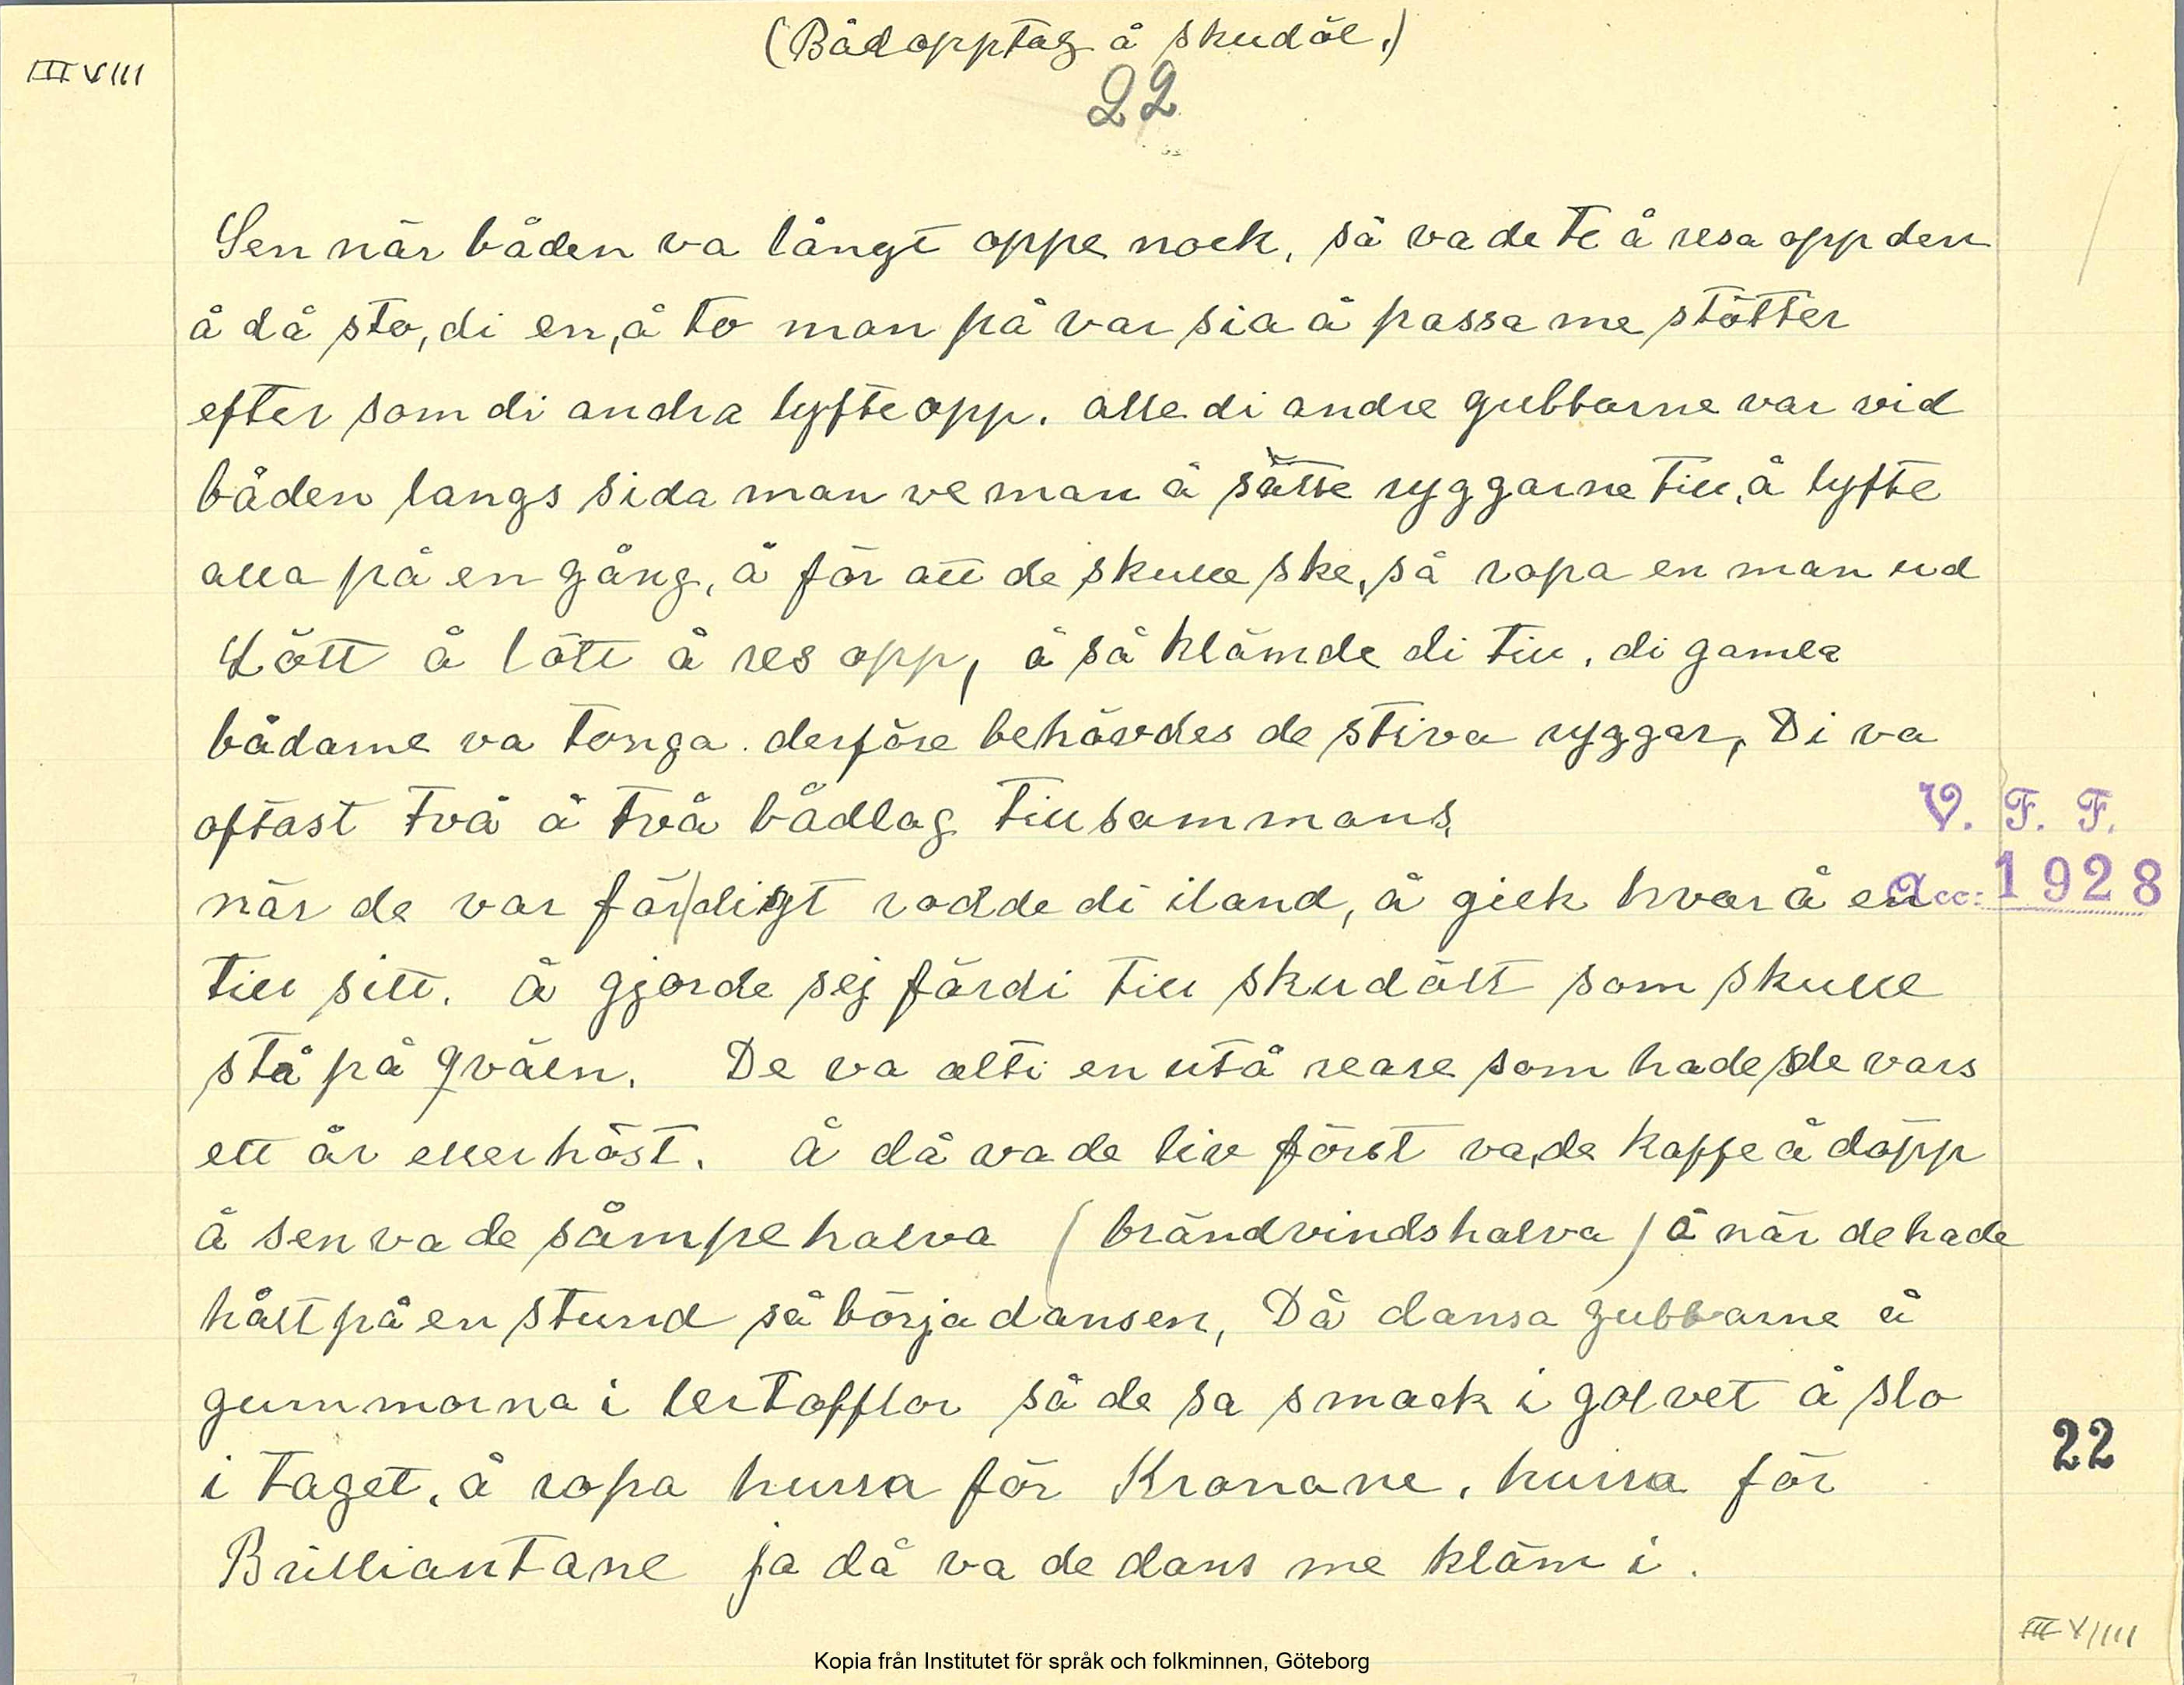 (Bådopptag å skudöl.)
III VIII
22
Sen när båden va långt oppe nock, så va de te å resa opp den
å då sto, di en, å to man på var sia å passa me stötter
efter som di andra lyfte opp. alle di andre gubbarne var vid
båden langs sida man ve man å sätte ryggarne till, å lyfte
alla på en gång, å för att de skulle ske, så ropa en man ud
Lött å lött å res opp, å så klämde di till, di gamla
bådarne va tonga. derföre behövdes de stiva ryggar, Di va
oftast två å två bådlag tillsammans.
V. F. F.
när de var färdigt rodde di iland, å gick hvar å en
Acc: 1928
till sitt. Å gjorde sej färdi till skudölt som skulle
stå på qväln. De va alti en utå rease som hade de vars
ett år eller höst. Å då va de liv först va de kaffe å döpp
å sen va de såmpehalva (brändvindshalva) å när de hade
hålt på en stund så börja dansen, Då dansa gubbarne å
gummorna i lertofflor så de sa smack i golvet å slo
22
i taget, å ropa hurra för Kronane, hurra för
Brilliantane ja då va de dans me kläm i.
III VIIII
Kopia från Institutet för språk och folkminnen, Göteborg